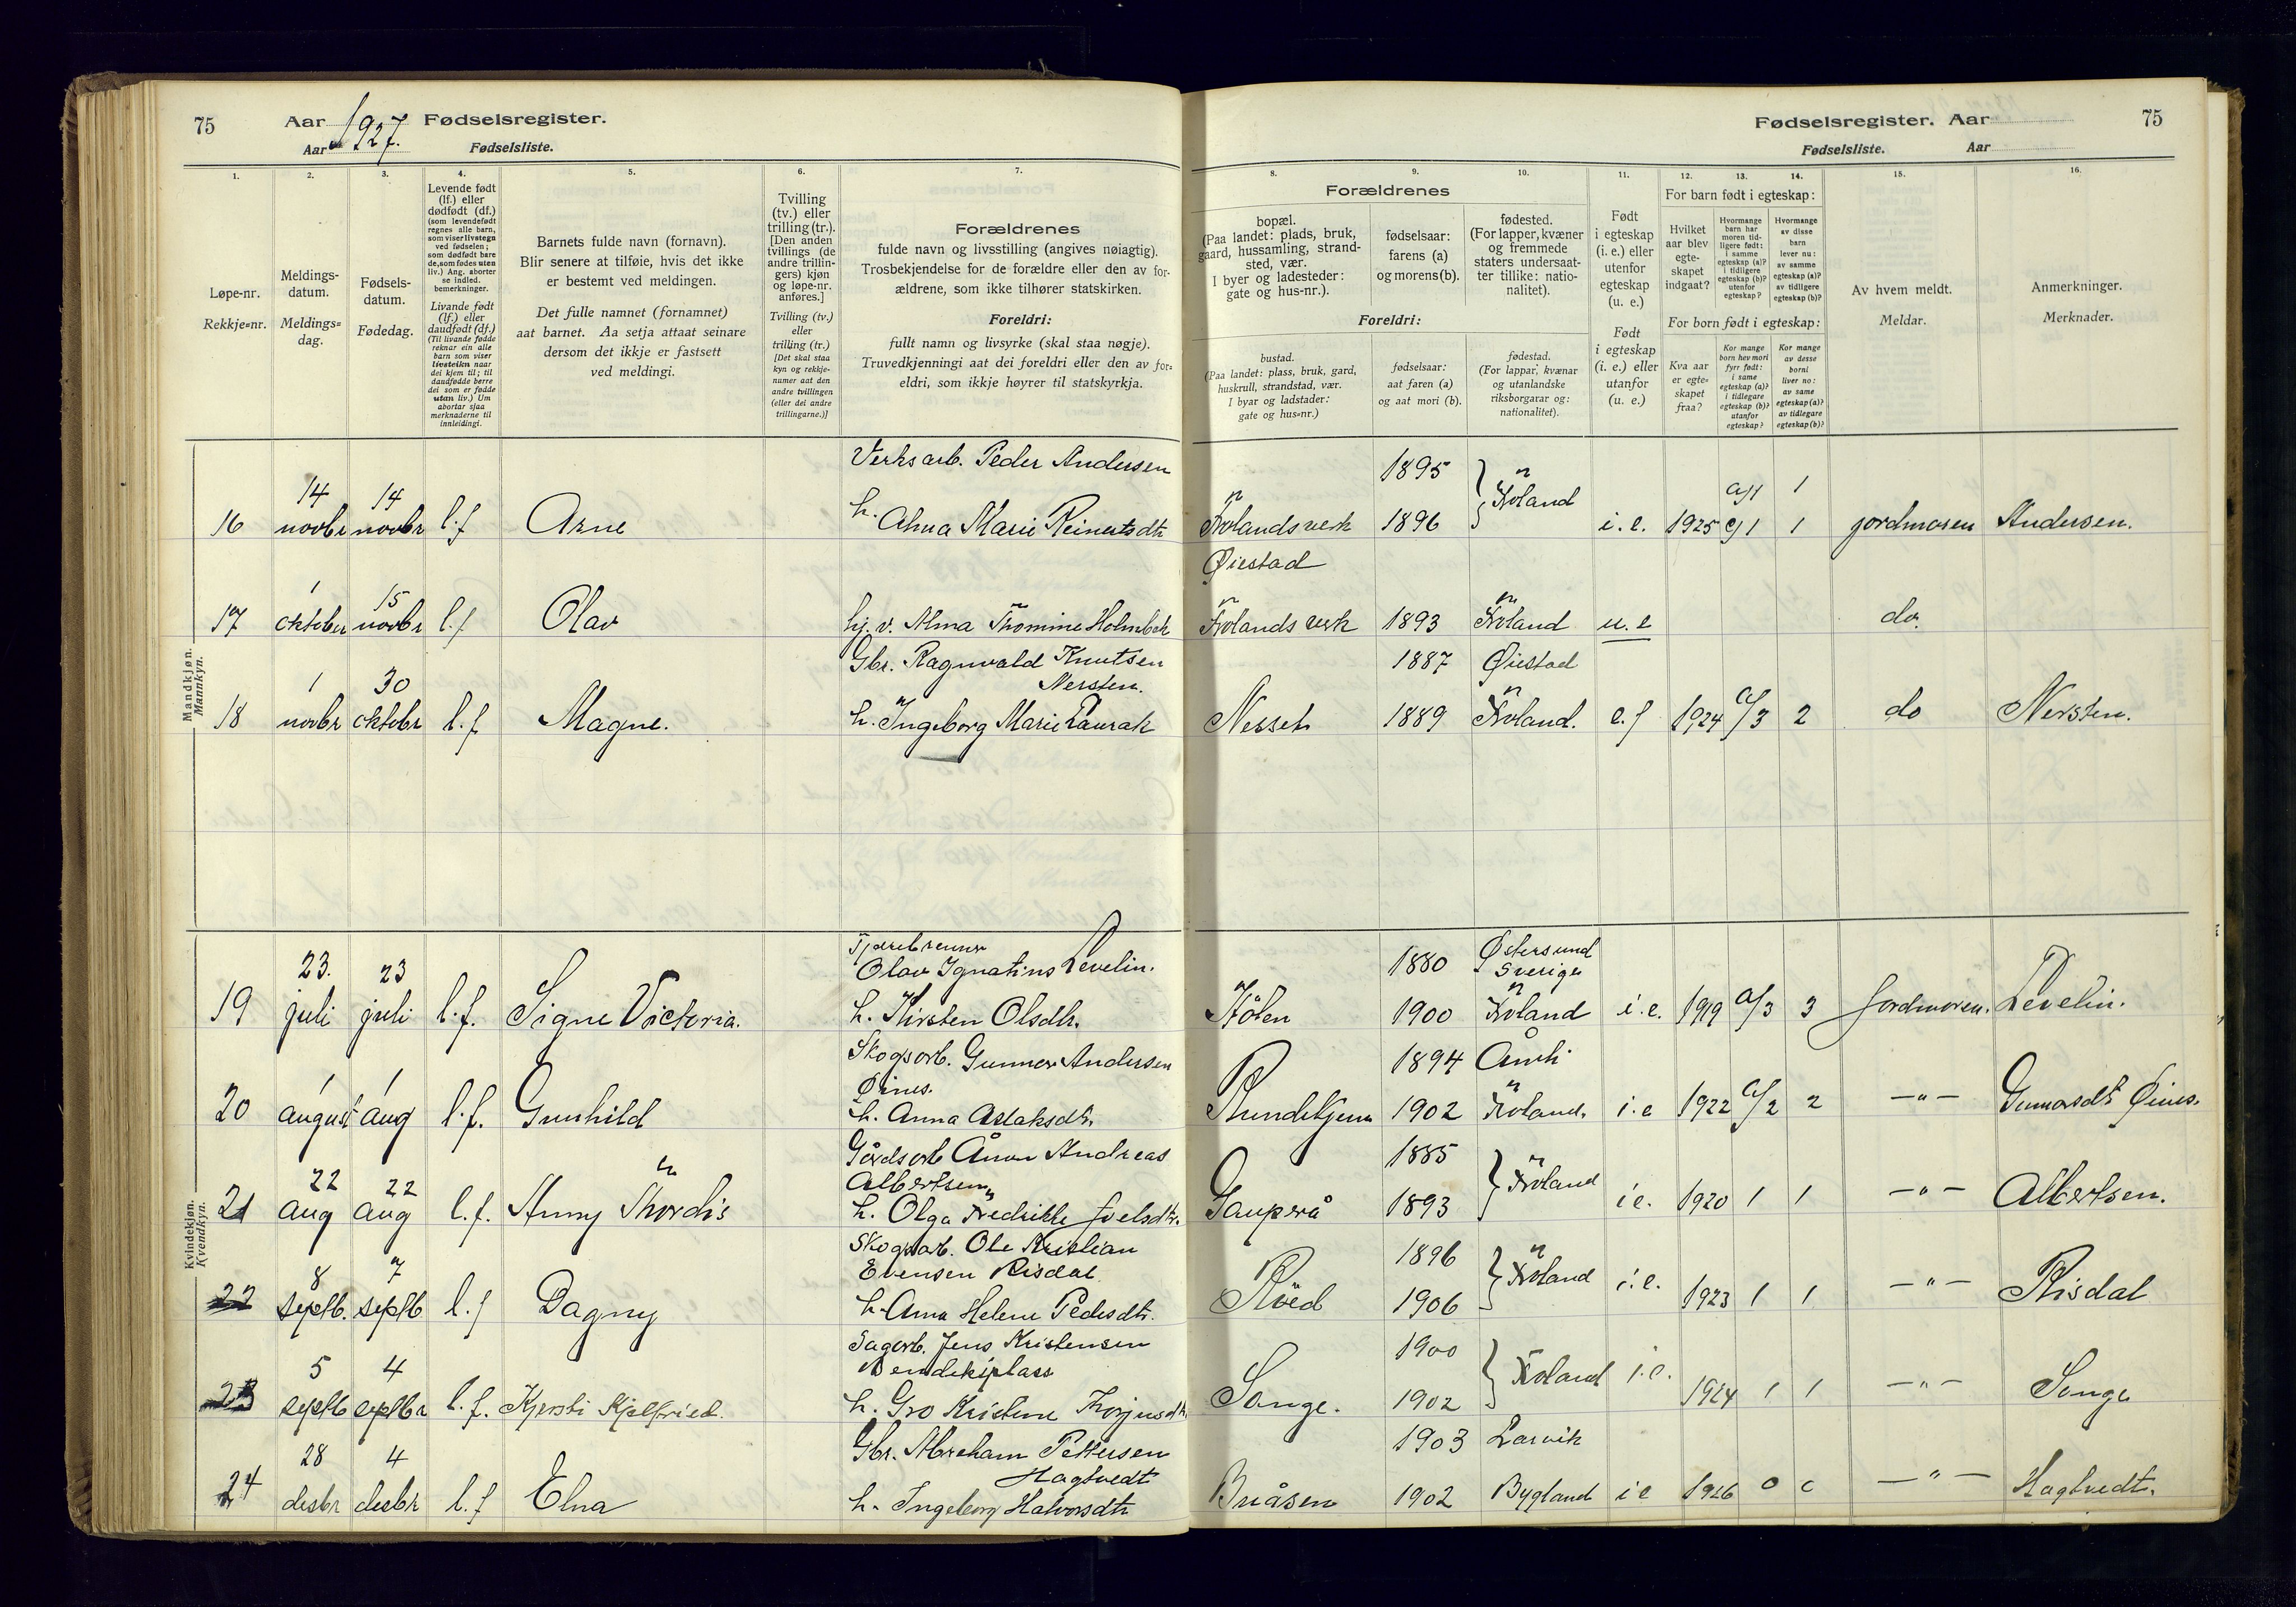 75
Aar 1927. Fødselsregister.
Aar Fødselsliste.
Fødselsregister. Aar
75
Fødselsliste. Aar
1. 2. 3. 4. 5. 6. 7.
Løpe-nr.
Rekkje=nr.
Meldings-
datum.
Meldings=
dag.
Fødsels-
datum.
Fødedag.
Levende født
(lf.) eller
dødfødt (df.)
(som levendefødt
regnes alle barn,
som viser livstegn
ved fødselen;
som dødfødt bare
de, som fødes uten
liv.) Ang. aborter
se indled.
bemerkninger.
Livande født
(lf.) eller
daudfødt (df.)
(Til livande fødde
reknar ein alle
barn som viser
livsteikn naar
dei kjem til; til
daudfødde berre
dei som er fødde
utan liv.) Um
abortar sjaa
merknaderne til
innleidingi.
Barnets fulde navn (fornavn).
Blir senere at tilføie, hvis det ikke
er bestemt ved meldingen.
Det fulle namnet (fornamnet)
aat barnet. Aa setja attaat seinare
dersom det ikkje er fastsett
ved meldingi.
Tvilling
(tv.) eller
trilling (tr.).
[Den anden
tvillings (de
andre trillin-
gers) kjøn
og løpe-nr.
anføres.]
Tvilling (tv.)
eller
trilling (tr.)
[Det skal staa
kyn og rekkje-
numer aat den
andre tvillingen
(eller dei andre
trillingarne.)]
Forældrenes
fulde navn og livsstilling (angives nøiagtig).
Trosbekjendelse for de forældre eller den av for-
ældrene, som ikke tilhører statskirken.
Foreldri:
fullt namn og livsyrke (skal staa nøgje).
Truvedkjenningi aat dei foreldri eller den av for=
eldri, som ikkje høyrer til statskyrkja.
8. 9. 10. 11. 12. 13. 14. 15. 16.
Forældrenes
bopæl.
(Paa landet: plads, bruk,
gaard, hussamling, strand-
sted, vær.
I byer og ladesteder:
gate og hus-nr.).
fødselsaar:
farens (a)
og morens (b).
fødested.
(For lapper, kvæner
og fremmede
staters undersaat-
ter tillike: natio-
nalitet).
Foreldri:
bustad.
(Paa landet: plass, bruk, gard,
huskrull, strandstad, vær.
I byar og ladstader:
gate og hus=nr.)
fødselsaar:
aat faren (a)
og aat mori (b).
fødestad.
(For lappar, kvænar
og utanlandske
riksborgarar og:
nationalitet).
Født
i egteskap
(i. e.) eller
utenfor
egteskap
(u. e.)
Født
i egteskap
(i. e.) eller
utanfor
(u. e.)
For barn født i egteskap:
Hvilket
aar blev
egte-
skapet
indgaat?
Hvormange
barn har
moren tid-
ligere født:
i samme
egteskap (a)?
i tidligere
egteskap (b)?
utenfor
egteskap?
Hvormange
av disse
barn
lever nu:
av samme
egteskap (a)?
av tidligere
egteskap (b)?
For born født i egteskap:
Kva aar
er egte-
skapet
fraa?
Kor mange
born hev mori
fyrr født:
i same
egteskap (a)?
i tidlegare
egteskap (b)?
utanfor
egteskap?
Kor mange
av desse
borni
liver no:
av same
egteskap (a)?
av tidlegare
egteskap (b)?
Av hvem meldt.
Meldar.
Anmerkninger.
Merknader.
Mandkjøn.
Mannkyn.
Verksarb. Peder Andersen 1895
16 14 novbr 14 novbr l.f Arne h. Anna Marie Reinertsdtr Frolandsverk 1896 Froland i.e. 1925 1 1 jordmoren Andersen.
Øiestad
17 1 oktober 15 novbr l.f Olav Frolands verk 1893 Froland u.e do.
Gbr. Ragnvald Knutsen 1887 Øiestad
Nersten.
18 1 novbr 30 oktobr l.f Magne. h. Ingeborg Marie Laurak Nesset 1889 Froland. e.f 1924 a/3 2 do Nersten.
Kvindekjøn.
Kvendkyn.
Tjærebrenner
Olav Ignatius Levelin. 1880 Østersund Sverige
19 23. juli 23 juli l.f. Signe Victoria. h. Kirsten Olsdtr. 1900 Froland i.e. 1919 a/3 3 Jordmoren. Levelin.
Skogsarb. Gunnar Andersen 1894 Åmli
Øines.
20 1 august 1 aug l.f. Gunhild h. Anna Aslaksdtr. 1902 Froland. i.e 1922 a/2 2 — " — Gunnarsdtr Øines.
Gårdsarb Ånon Andreas 1885
Albertsen
21 22 aug 22 aug l.f. Anny Thordis h. Olga Fredrikke Joelsdtr. Gauperå 1893 Froland i e. 1920 1 1 — " — Albertsen.
Skogsarb. Ole Kristian 1896
Evensen Risdal
22 8 septb. 7 septb. l.f Dagny h. Anna Helene Pedersdtr. Røed 1906 Froland i.e. 1923 1 1 — " — Risdal
Sagarb. Jens Kristensen 1900
Bendiksplass
23 5 septb 4 septbr l.f. Kjersti Kjelfried. h. Gro Kristine Torjusdtr. Songe. 1902 Froland i.e. 1924 1 1 — " — Songe
Gbr. Abreham Pettersen 1903 Larvik
Hagtvedt
24 28 desbr 4 desbr l.f Elna h. Ingeborg Halvorsdtr Buåsen 1902 Bygland i e 1926 0 0 — " — Hagtvedt.